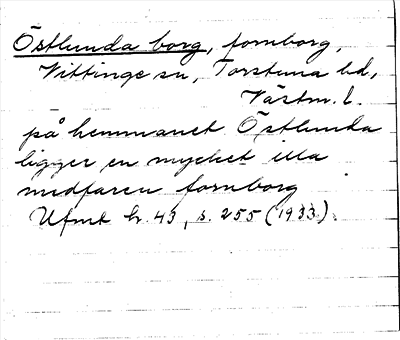 Östlunda borg, fornborg,
Vittinge sn, Torstuna hd,
Västm. l.
på hemmanet Östlunda
ligger en mycket illa
medfaren fornborg
Ufmt h. 43, s. 255 (1933).